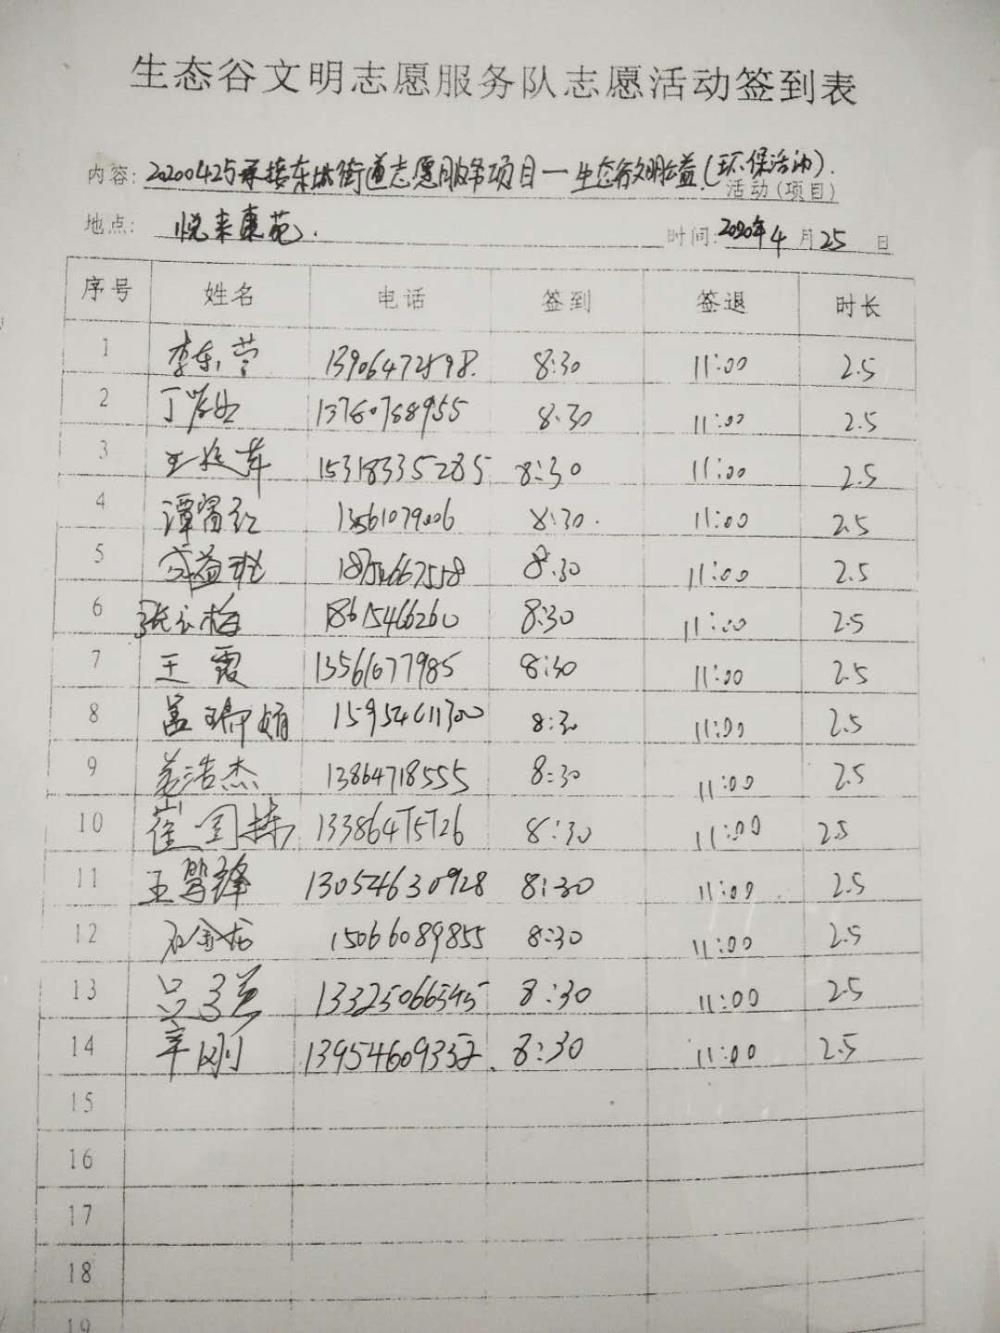 生态谷文明志愿服务队志愿活动签到表
内容: 20200425承接东城街道志愿服务项目—生态谷文明公益(环保活动). 活动(项目)
地点: 悦来惠苑. 时间: 2020年4月25日
序号 姓名 电话 签到 签退 时长
1 李东营 8:30 11:00 2.5
2 8:30 11:00 2.5
3 15318335285 8:30 11:00 2.5
4 8:30. 11:00 2.5
5 8:30 11:00 2.5
6 18615466260 8:30 11:00 2.5
7 王霞 13561677985 8:30 11:00 2.5
8 15954611300 8:30 11:00 2.5
9 姜浩杰 13864718555 8:30 11:00 2.5
10 崔国栋 13386475726 8:30 11:00 2.5
11 13054630928 8:30 11:00 2.5
12 石金龙 15066089855 8:30 11:00 2.5
13 13325066545 8:30 11:00 2.5
14 辛刚 8:30 11:00 2.5
15
16
17
18
19